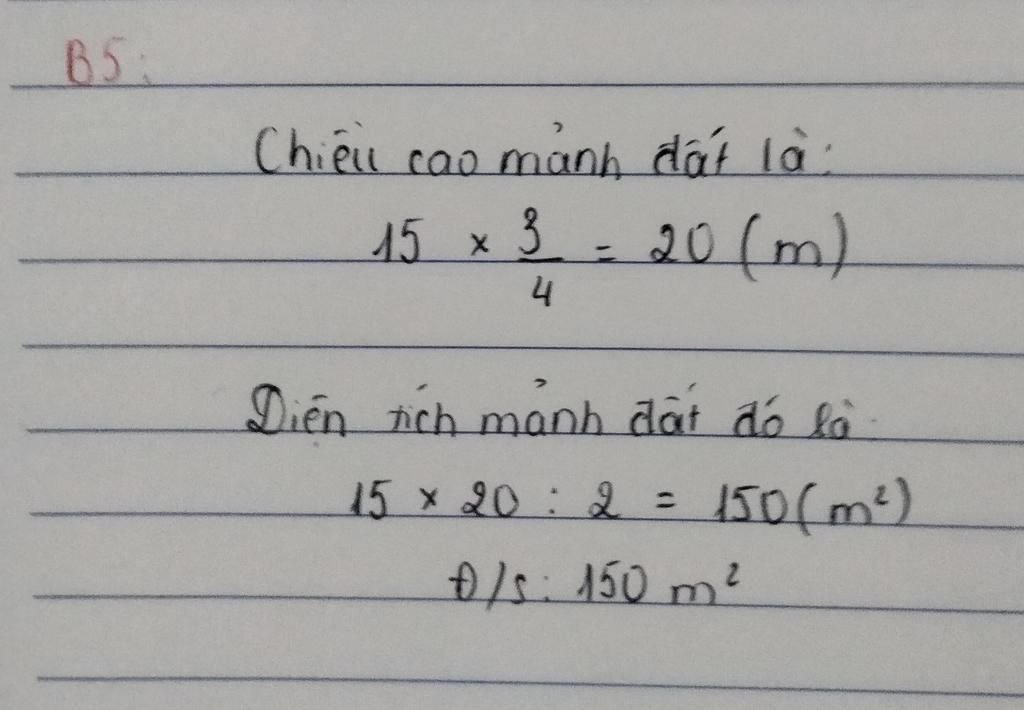 B5:
Chiều cao mảnh đất là:
15 × 3/4 = 20 (m)
Diện tích mảnh đất đó là
15 × 20 : 2 = 150 (m²)
Đ/s: 150 m²